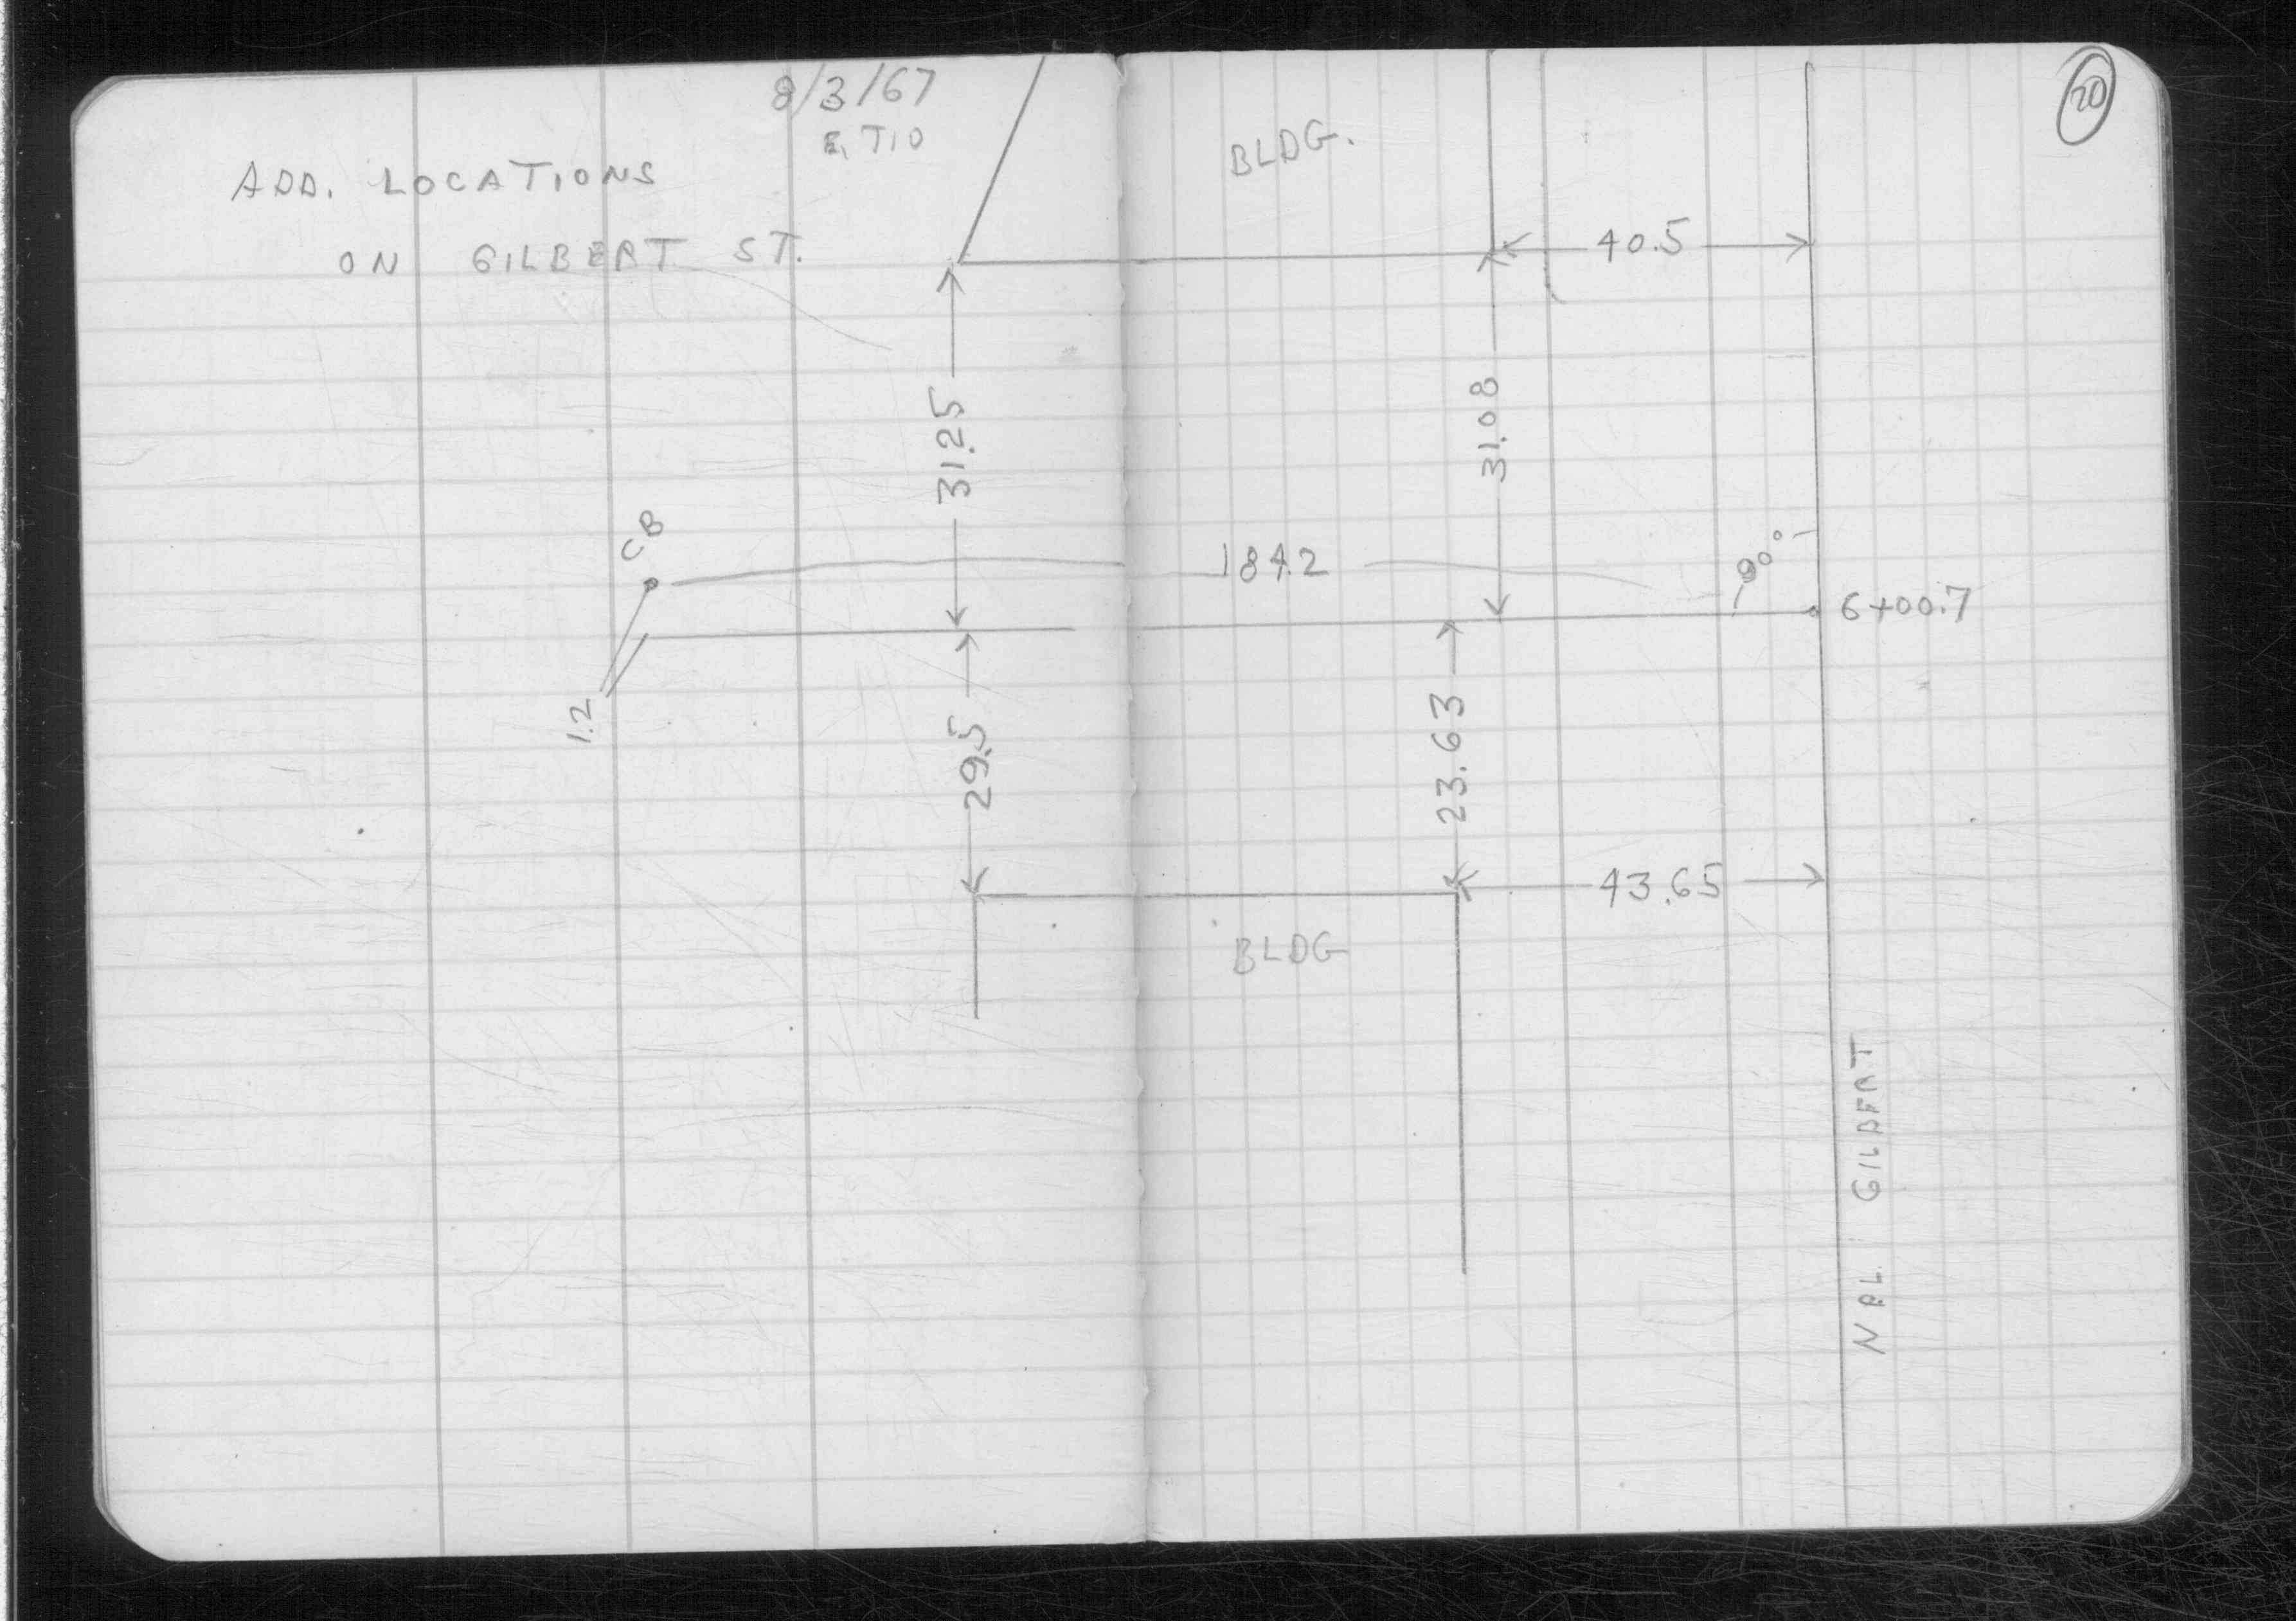 8/3/67
E, TIO
ADD. LOCATIONS
ON GILBERT ST.
20
BLDG.
40.5
31.25
31.08
CB
184.2
90°
6+00.7
1.2
29.5
23.63
43.65
BLDG
N BL GILBERT